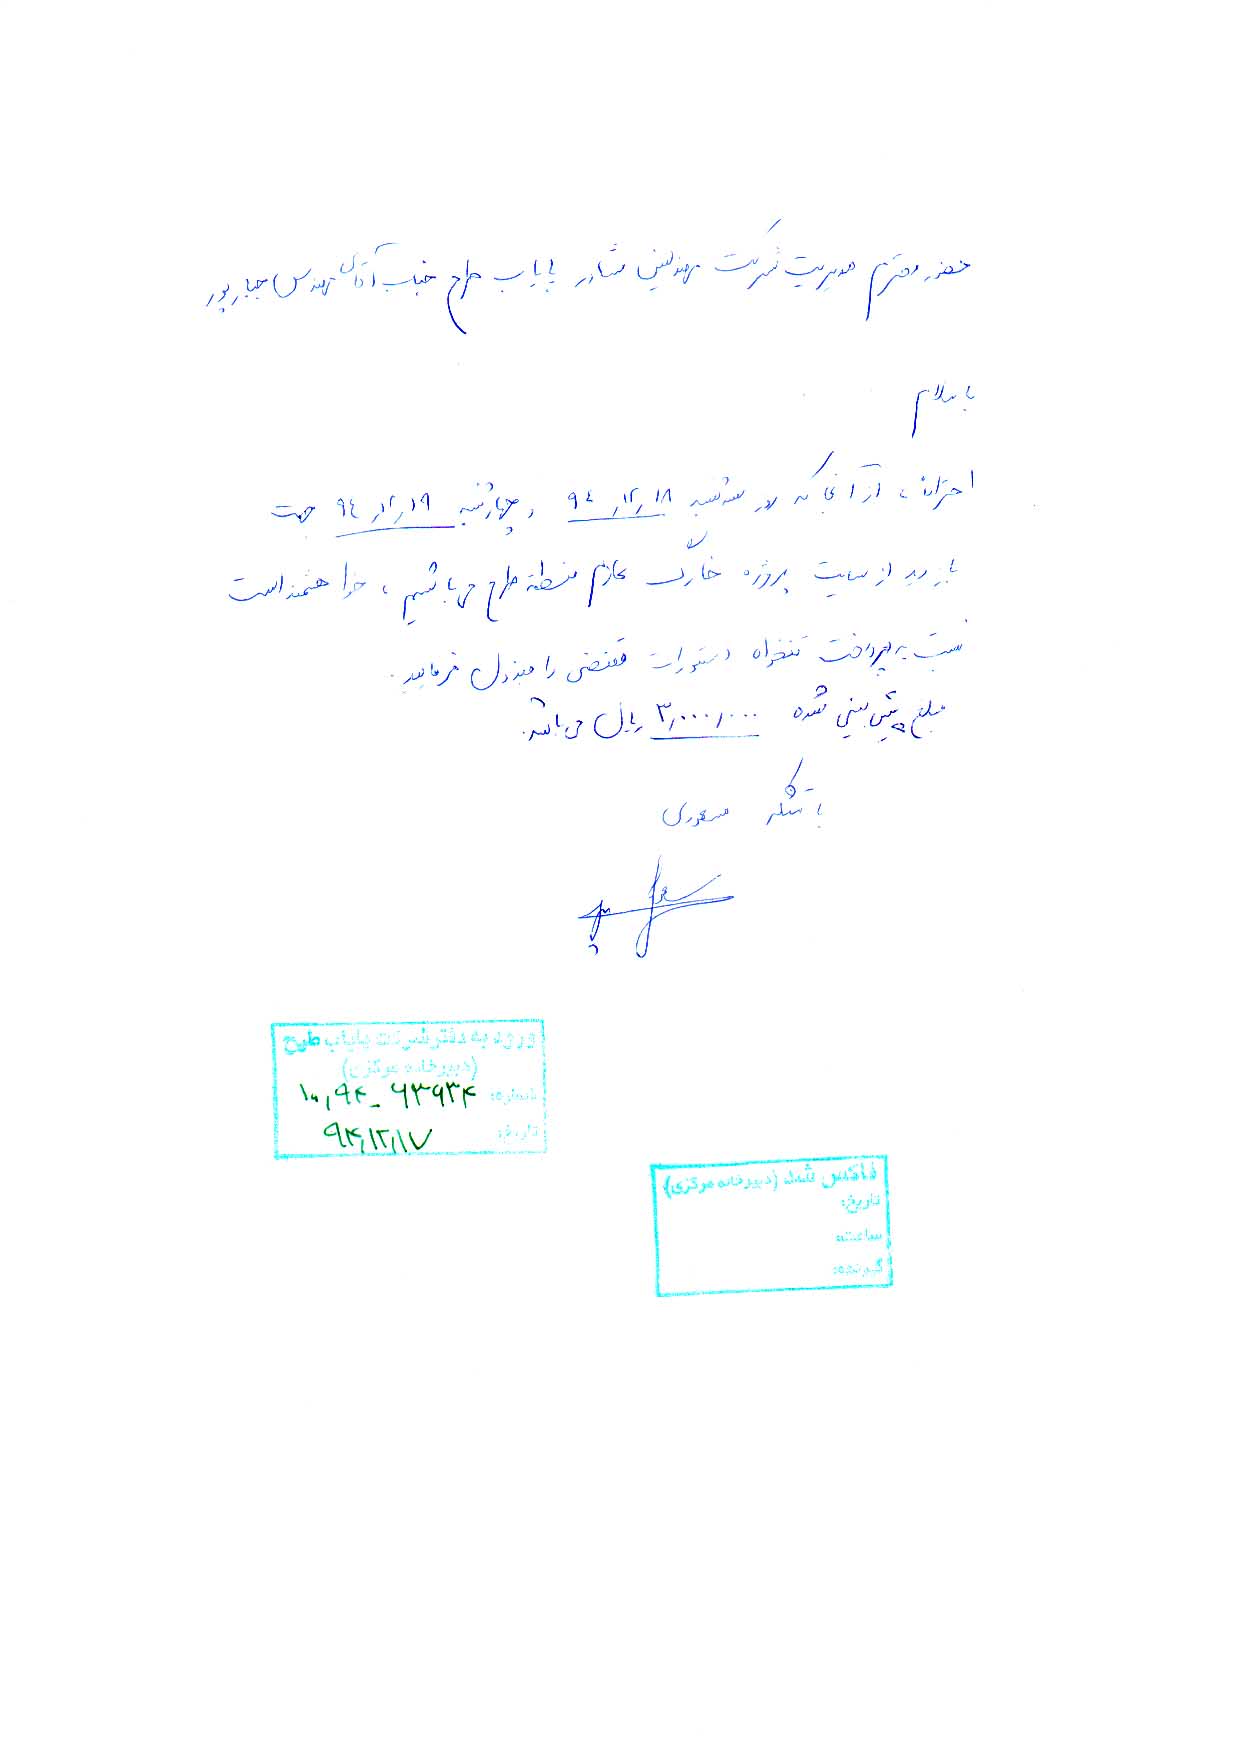 حضور محترم مدیریت شرکت مهندسین مشاور پایاب طرح جناب آقای مهندس جبارپور
با سلام
احتراماً ، از آنجا که روز سه شنبه ۹۴٫۱۲٫۱۸ و چهارشنبه ۹۴٫۱۲٫۱۹ جهت
بازدید از سایت پروژه خارگ عازم منطقه طرح می باشیم ، خواهشمند است
نسبت به پرداخت تنخواه دستورات مقتضی را مبذول فرمایید.
مبلغ پیش بینی شده ۳٫۰۰۰٫۰۰۰ ریال می باشد.
با تشکر
ورود به دفتر شرکت پایاب طرح
(دبیرخانه مرکزی)
شماره: ۱۰٫۹۴-۶۳۹۳۴
تاریخ: ۹۴٫۱۲٫۱۷
فاکس شد (دبیرخانه مرکزی)
تاریخ:
ساعت:
گیرنده: